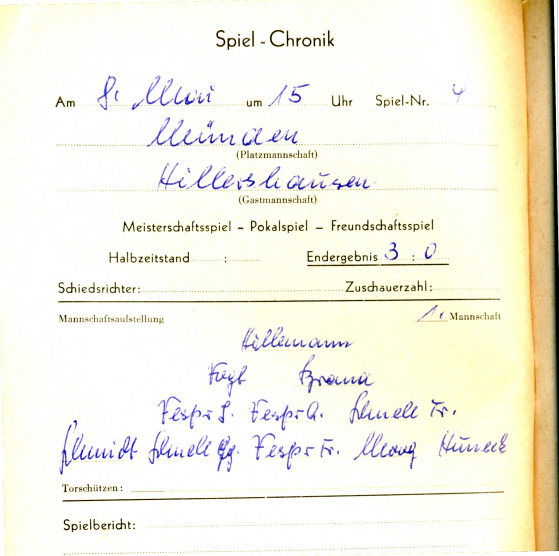 Spiel - Chronik
Am 8. Mai um 15 Uhr Spiel-Nr. 4
Münden
(Platzmannschaft)
Hillershausen
(Gastmannschaft)
Meisterschaftsspiel – Pokalspiel – Freundschaftsspiel
Halbzeitstand : Endergebnis 3 : 0
Schiedsrichter: Zuschauerzahl:
Mannschaftsaufstellung 1. Mannschaft
Hillemann
Vogt
Vesper J. Vesper A. Schnell Fr.
Schmidt Schnell Gg. Vesper Fr. Huneck
Torschützen :
Spielbericht: